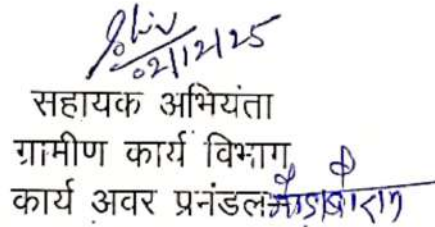 02/12/25
सहायक अभियंता
ग्रामीण कार्य विभाग
कार्य अवर प्रनंडल